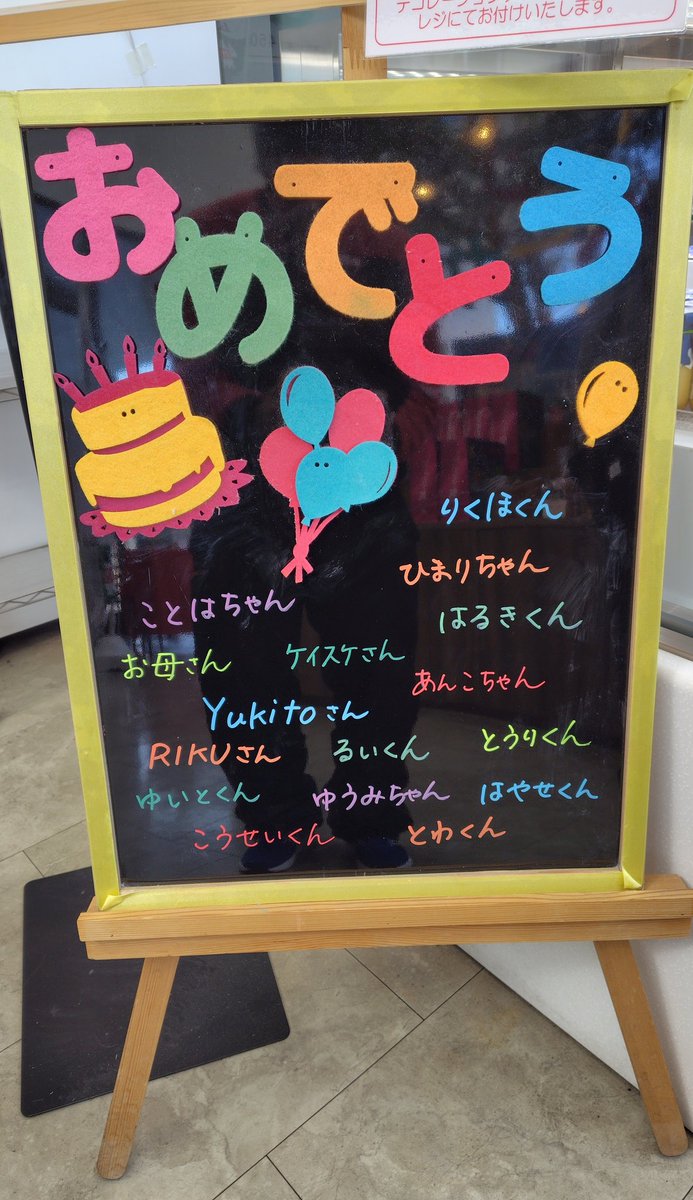 レジにてお付けいたします。
おめでとう
りくほくん
ひまりちゃん
ことはちゃん
はるきくん
お母さん
ケイスケさん
あんこちゃん
Yukitoさん
RIKUさん
るいくん
とうりくん
ゆいとくん
ゆうみちゃん
はやせくん
こうせいくん
とわくん